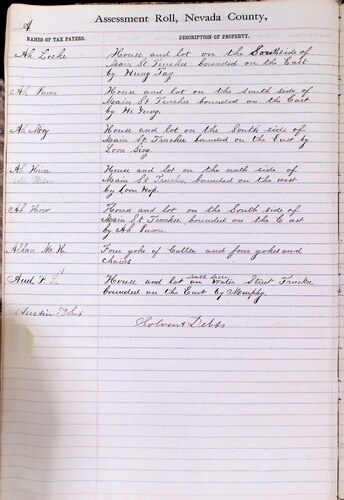 A
Assessment Roll, Nevada County,
NAMES OF TAX PAYERS.
DESCRIPTION OF PROPERTY.
Ah Locke House and lot on the South side of
Main St Truckee bounded on the East
by Hung Tay
House and lot on the south side of
Main St Truckee bounded on the East
by Hi Jung.
Ah Moy House and lot on the South side of
Main St Truckee bounded on the East by
Loon Sing
House and lot on the north side of
Main St Truckee bounded on the west
by Loon Hop.
Ah How House and lot on the South side of
Main St Truckee bounded on the East
by Ah
Allan Four yoke of Cattle and four yokes and
chains
House and lot on Water Street Truckee
bounded on the East by Murphy.
Austin
Solvent Debts